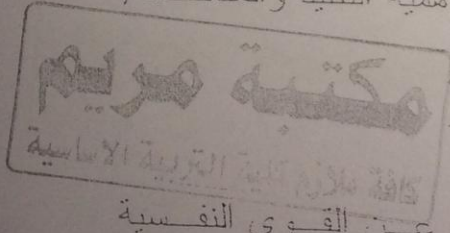 مكتبة مريم
كافة ملازم كلية التربية الاساسية
عن القوى النفسية